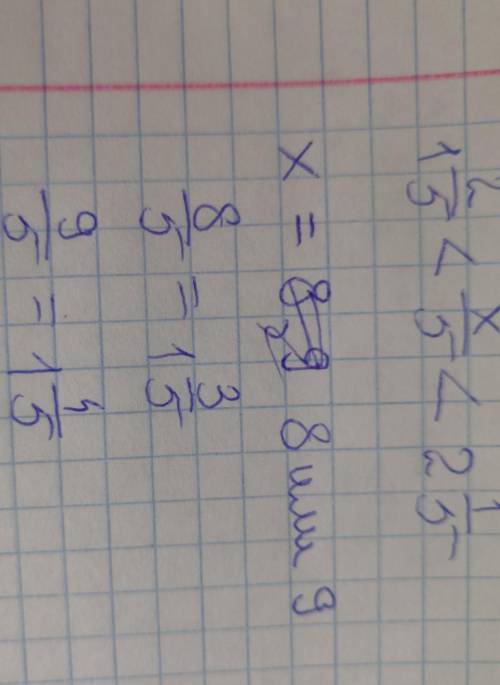 1 2/5 < x/5 < 2 1/5
x = 8 или 9
8/5 = 1 3/5
9/5 = 1 4/5